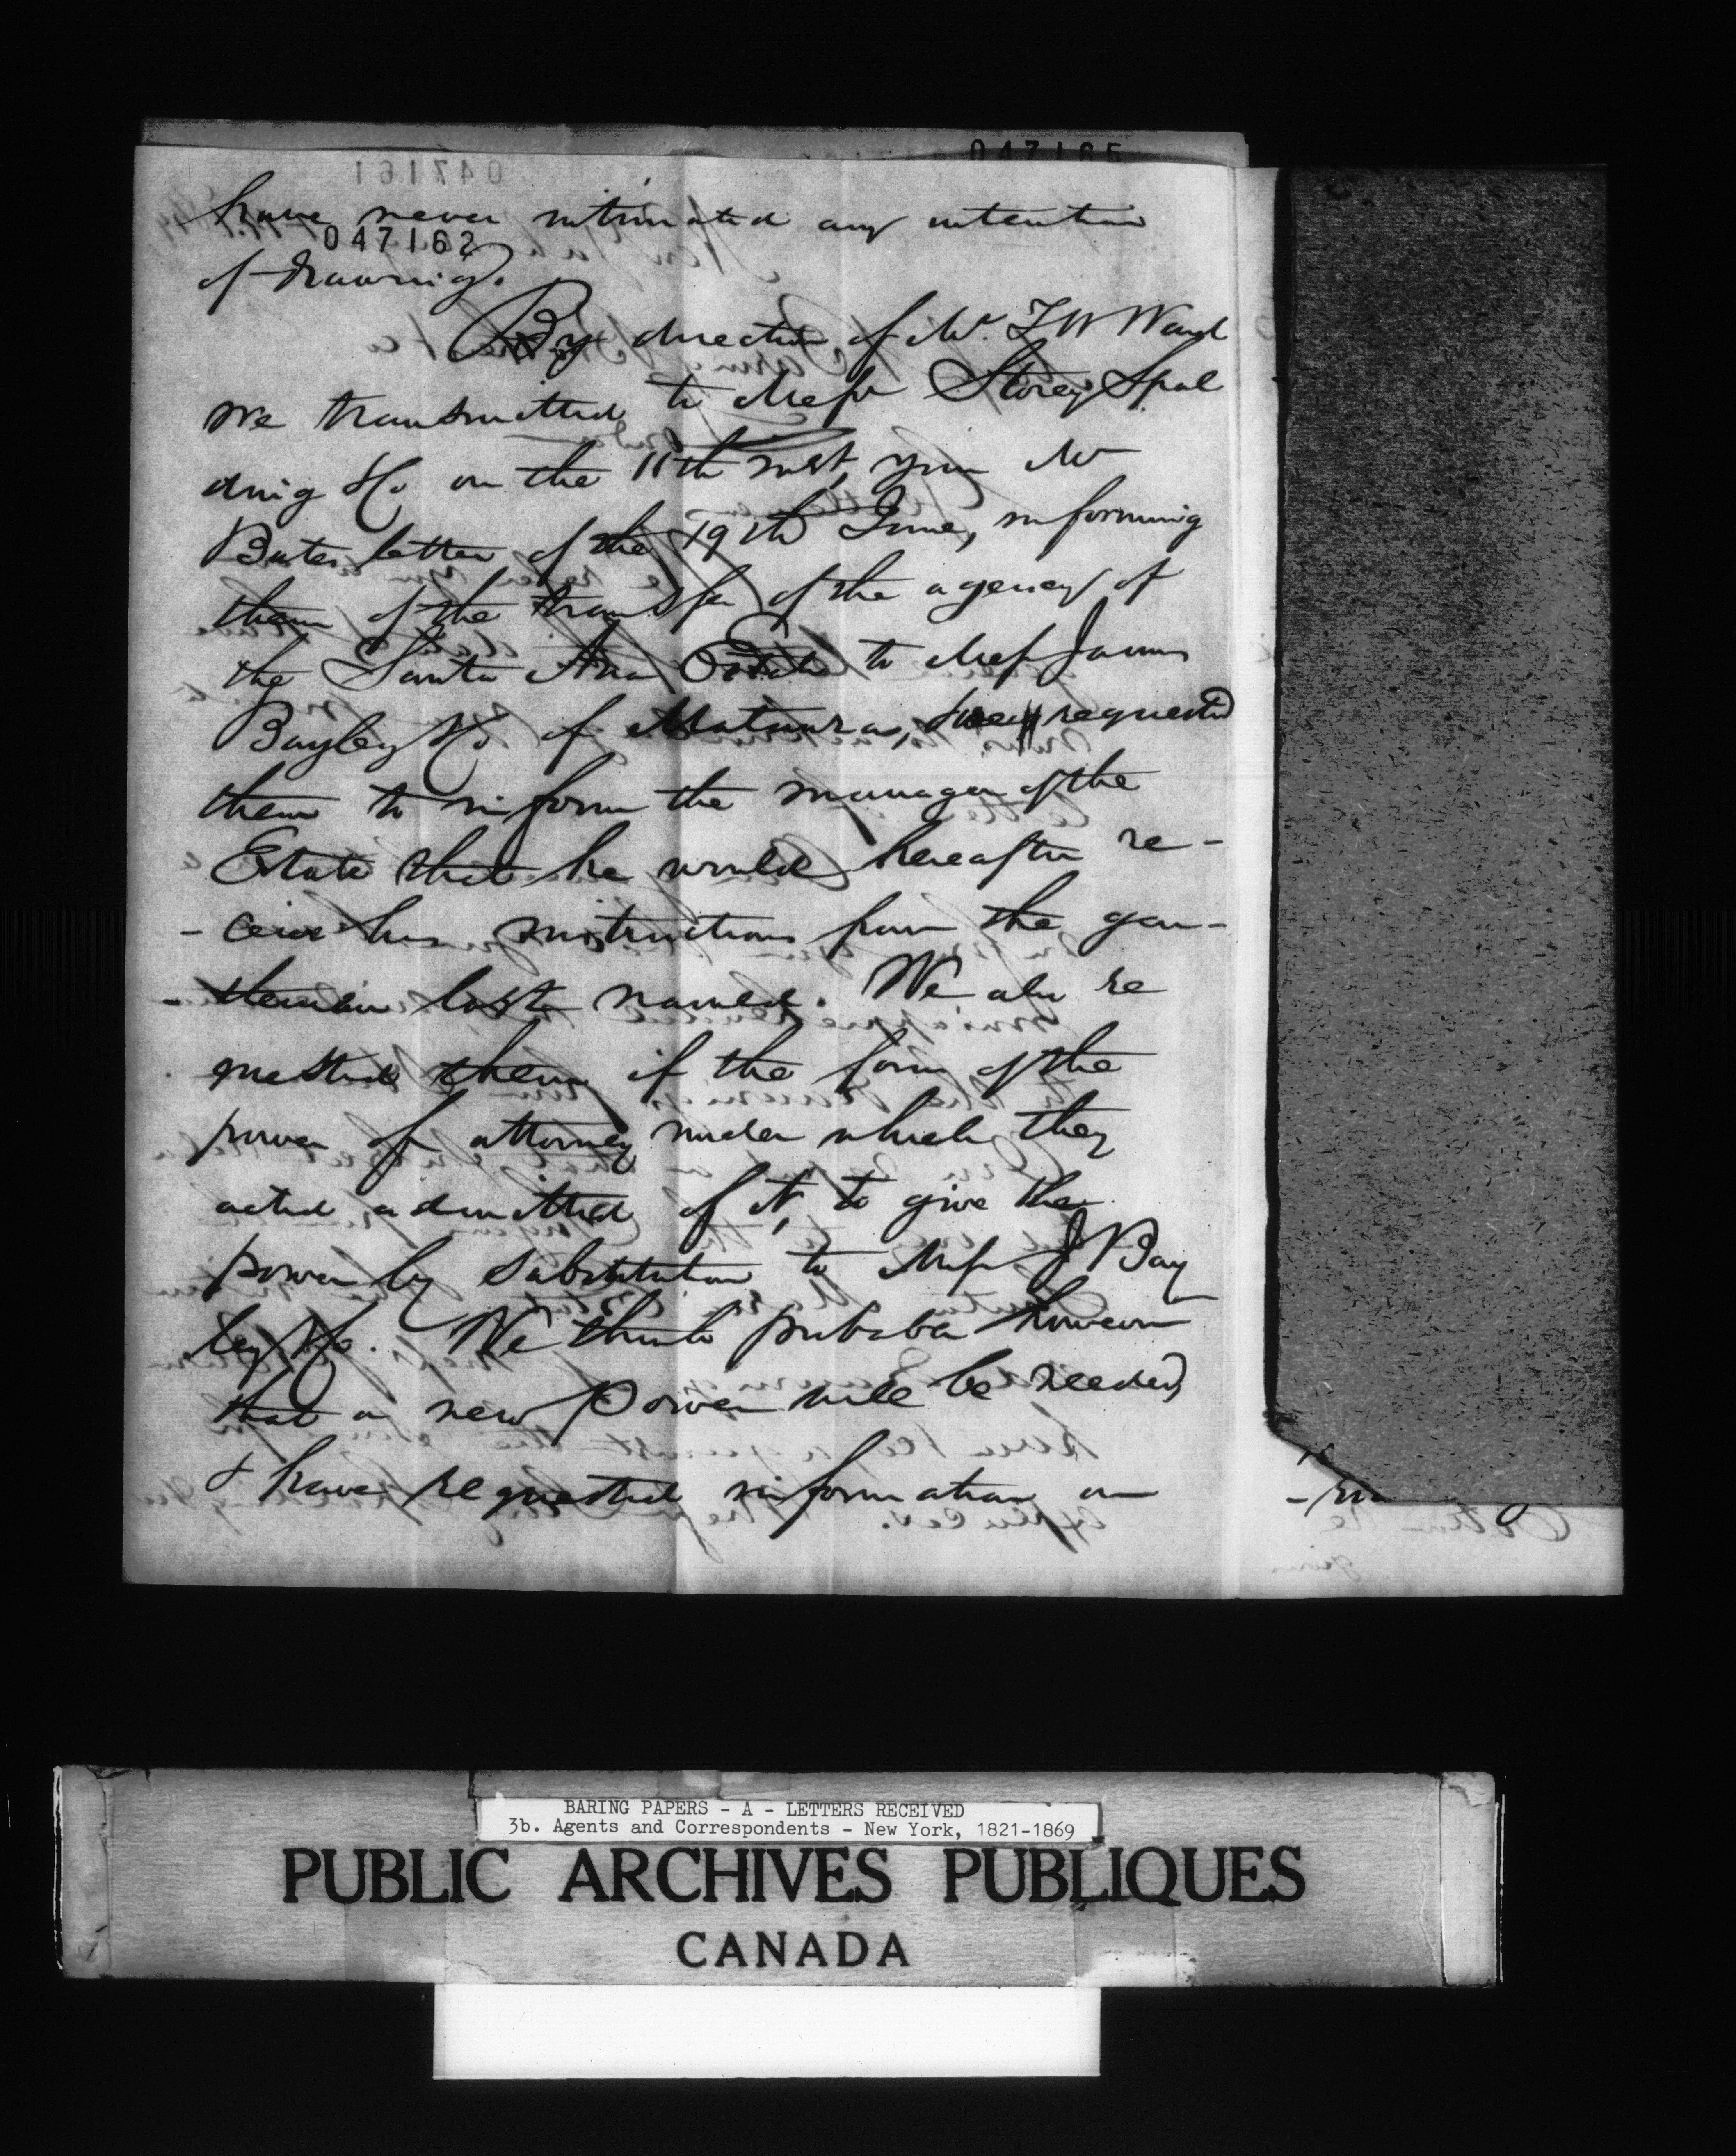 047165
047161
have never intimated any intention
047162
of drawing.
By direction of Mr. T W Ward
we transmitted to Messrs Storey Spal
ding & Co on the 11th inst, your Mr
Bates letter of the 19th June, informing
them of the transfer of the agency of
the Santa Ana Estate to Messrs James
Bayley & Co of Matanzas, & requested
them to inform the manager of the
Estate that he would hereafter re-
-ceive his instructions from the gen-
-tlemen last named. We also re
quested them if the form of the
power of attorney under which they
acted admitted of it, to give the
power by substitution to Messrs J Bay
ley & Co. We think probable however
that a new Power will be needed,
& have requested information on
BARING PAPERS - A - LETTERS RECEIVED
3b. Agents and Correspondents - New York, 1821-1869
PUBLIC ARCHIVES PUBLIQUES
CANADA